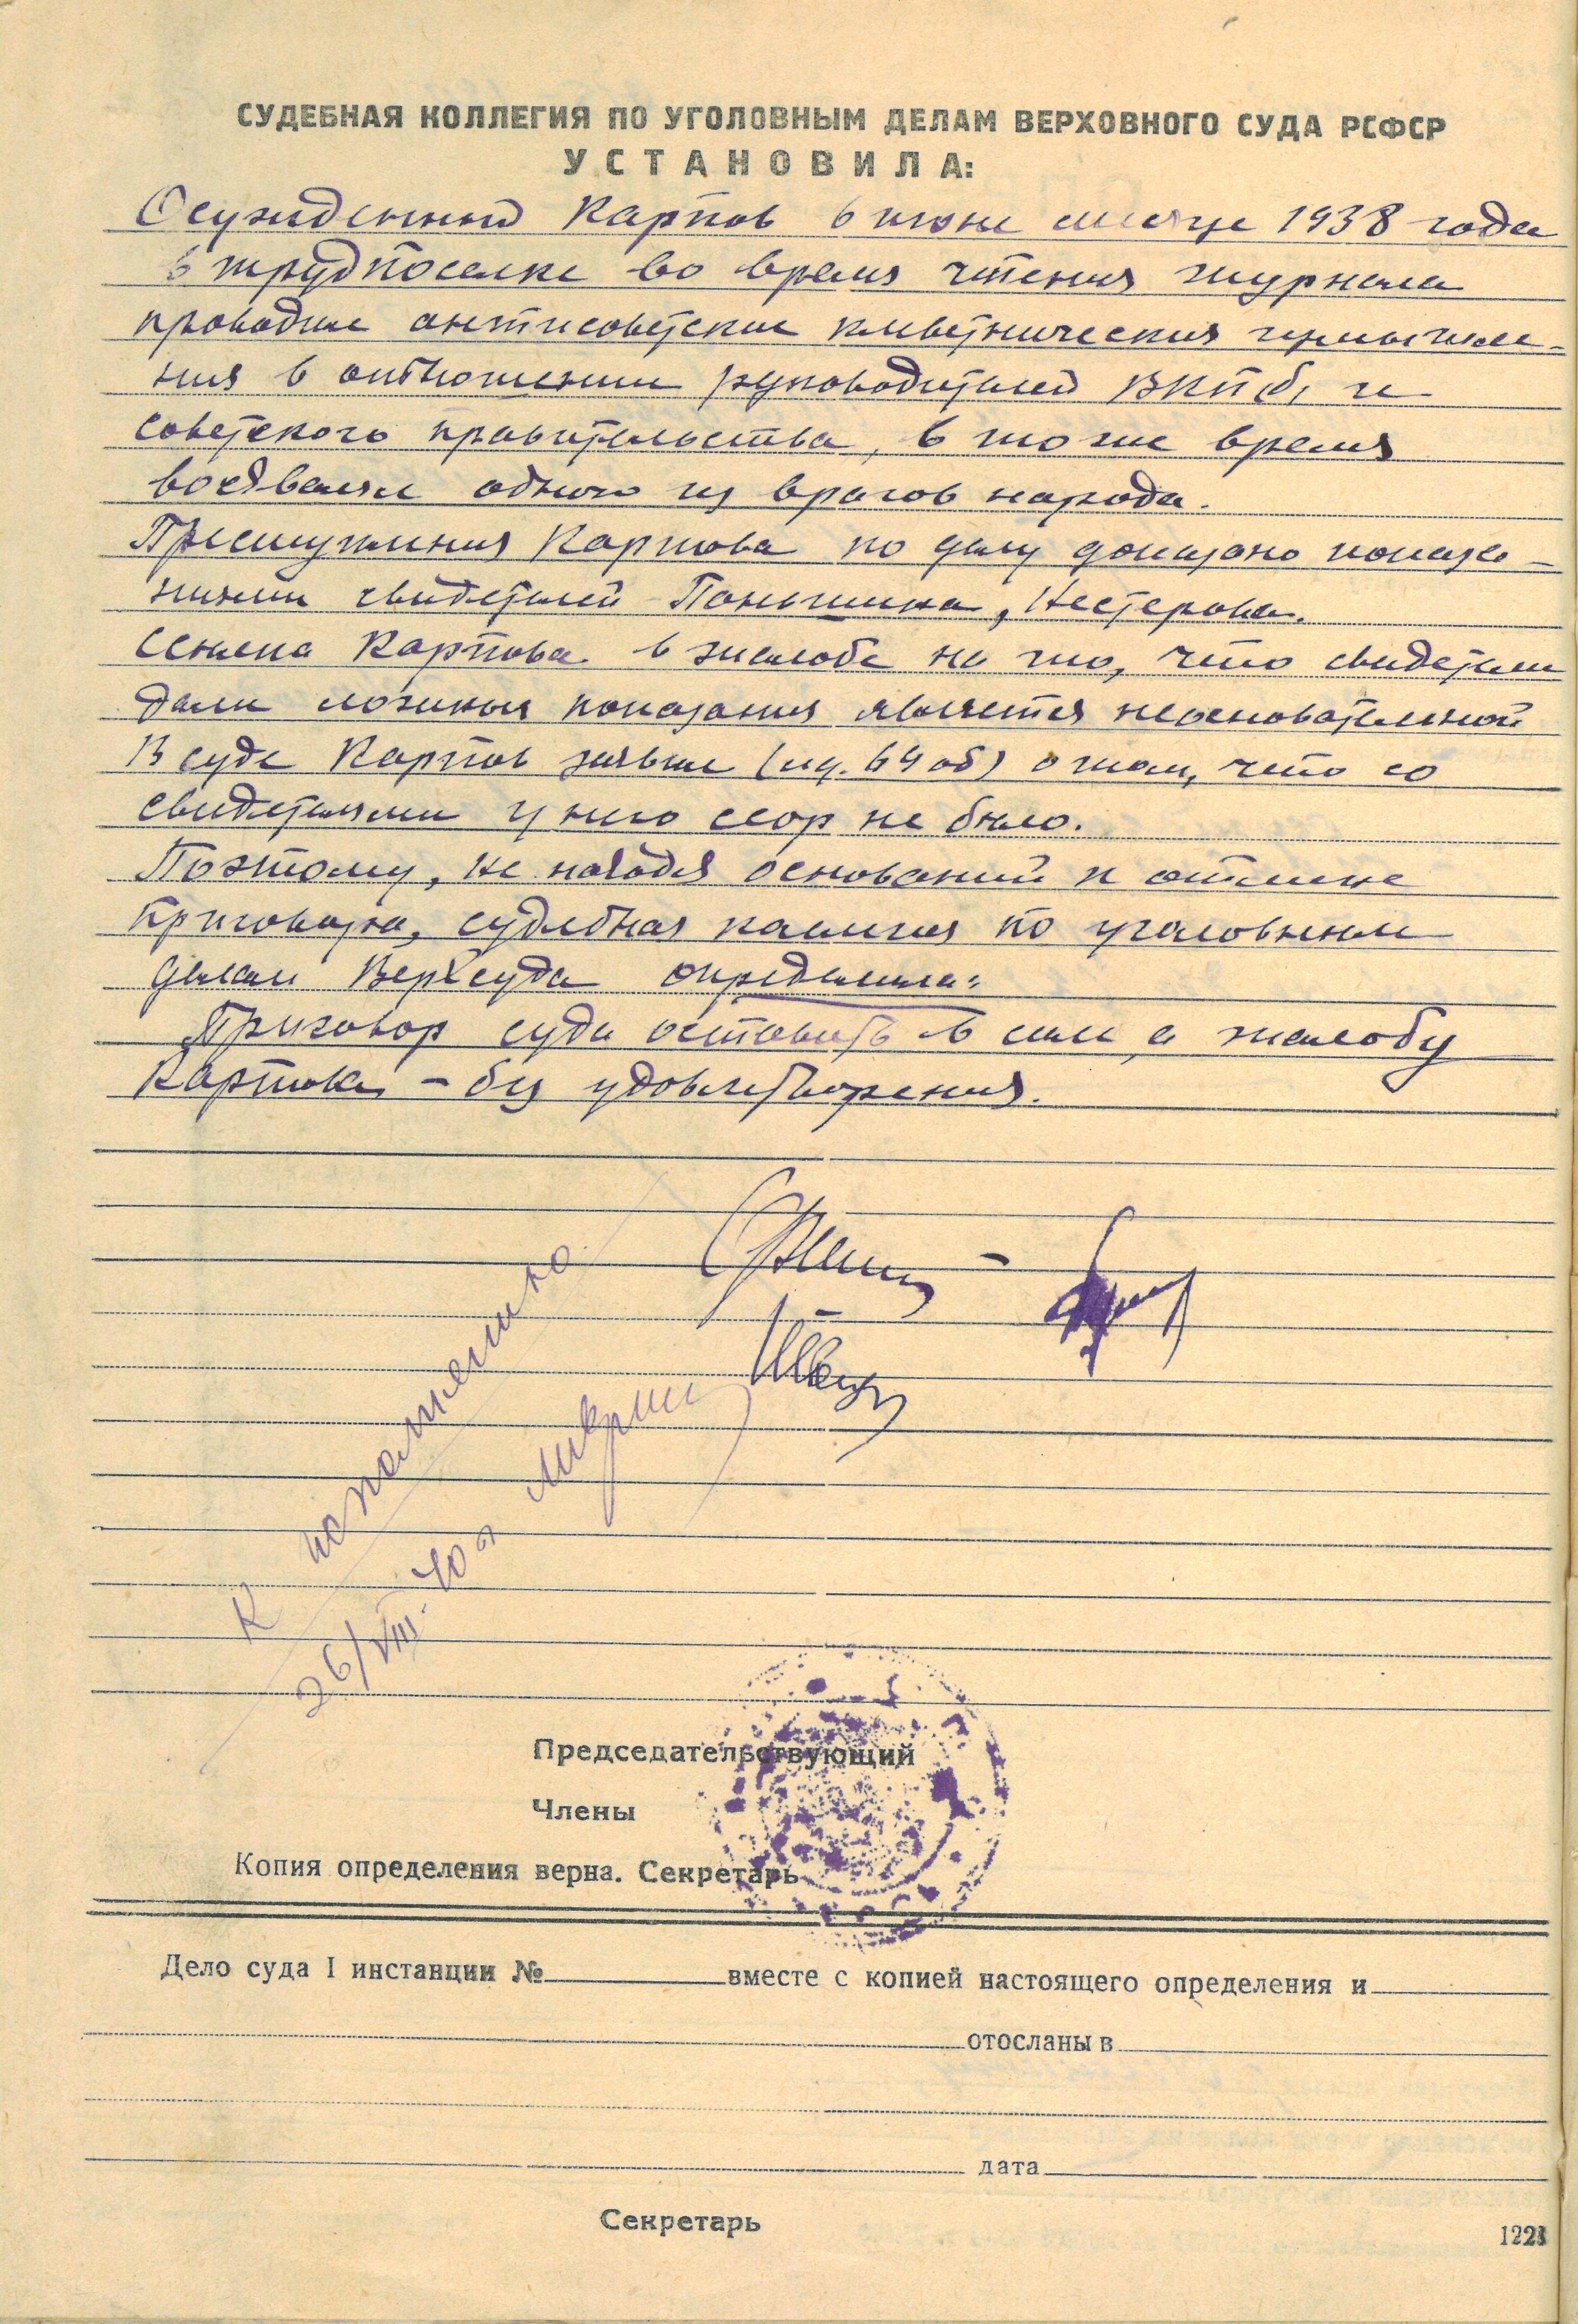 СУДЕБНАЯ КОЛЛЕГИЯ ПО УГОЛОВНЫМ ДЕЛАМ ВЕРХОВНОГО СУДА РСФСР
УСТАНОВИЛА:
Осужденный Карпов в июне месяце 1938 года
в трудпоселке во время чтения журнала
проводил антисоветские клеветнические измышле-
ния в отношении руководителей ВКП(б) и
советского правительства, в то же время
восхвалял одного из врагов народа.
Преступления Карпова по делу доказано показа-
ниями свидетелей Паньшина, Нестерова.
Ссылка Карпова в жалобе на то, что свидетели
дали ложные показания является неосновательной
В суде Карпов заявил (лд. 64 об) о том, что со
свидетелями у него ссор не было.
Поэтому, не находя оснований к отмене
приговора, судебная коллегия по уголовным
делам Верхсуда определила:
Приговор суда оставить в силе, а жалобу
Карпова – без удовлетворения.
К исполнению
26/VIII-40 г
Председательствующий
Члены
Копия определения верна. Секретарь
Дело суда I инстанции № вместе с копией настоящего определения и
отосланы в
дата
Секретарь